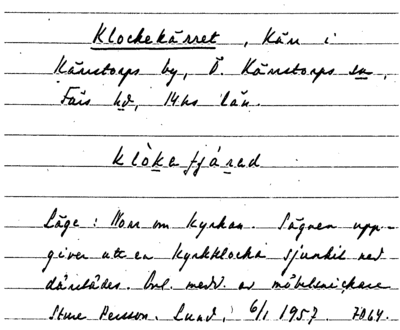 Klockekärret, Kärr i
Kärrstorps by, Ö. Kärrstorps sn,
Färs hd, M-hs län.
klòkefjárad
Läge: Norr om kyrkan. Sägnen upp-
giver att en kyrkklocka sjunkit ned
därstädes. Enl. medd. av möbelsnickare
Sture Persson, Lund, 6/1 1957. 7064.